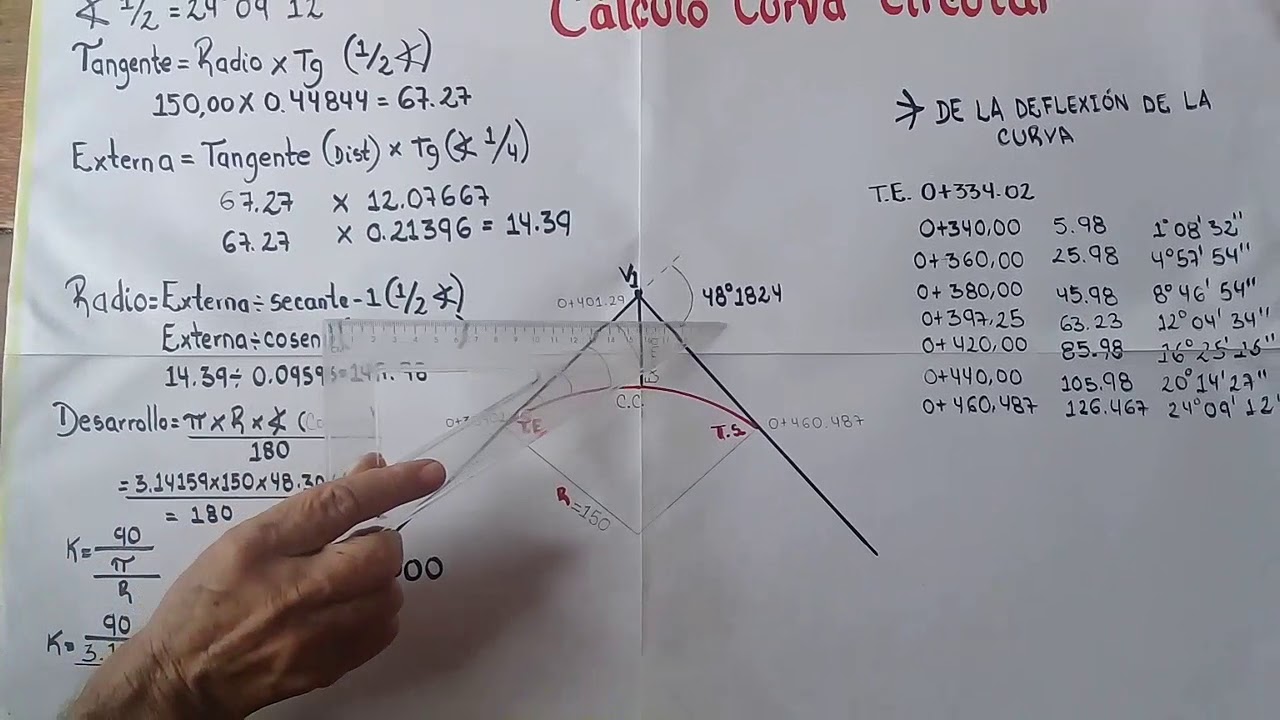 ∡ 1/2 = 24°09'12
Calculo Curva Circular
Tangente = Radio x Tg (1/2 ∡)
150,00 x 0.44844 = 67.27
Externa = Tangente (Dist) x Tg (∡ 1/4)
67.27 x 12.07667
67.27 x 0.21396 = 14.39
Radio = Externa ÷ secante - 1 (1/2 ∡)
Externa ÷ cosen
14.39 ÷ 0.0959
Desarrollo = π x R x ∡
180
= 3.14159x150x48.30
= 180
K = 90
π
R
K = 90
3.1
00
V1
0+401.29
48°1824
C.C
T.E.
T.S
0+460.487
R=150
∡ DE LA DEFLEXIÓN DE LA
CURVA
T.E. 0+334.02
0+340,00 5.98 1°08'32"
0+360,00 25.98 4°57'54"
0+380,00 45.98 8°46'54"
0+397,25 63.23 12°04'34"
0+420,00 85.98 16°25'16"
0+440,00 105.98 20°14'27"
0+460,487 126.467 24°09'12"